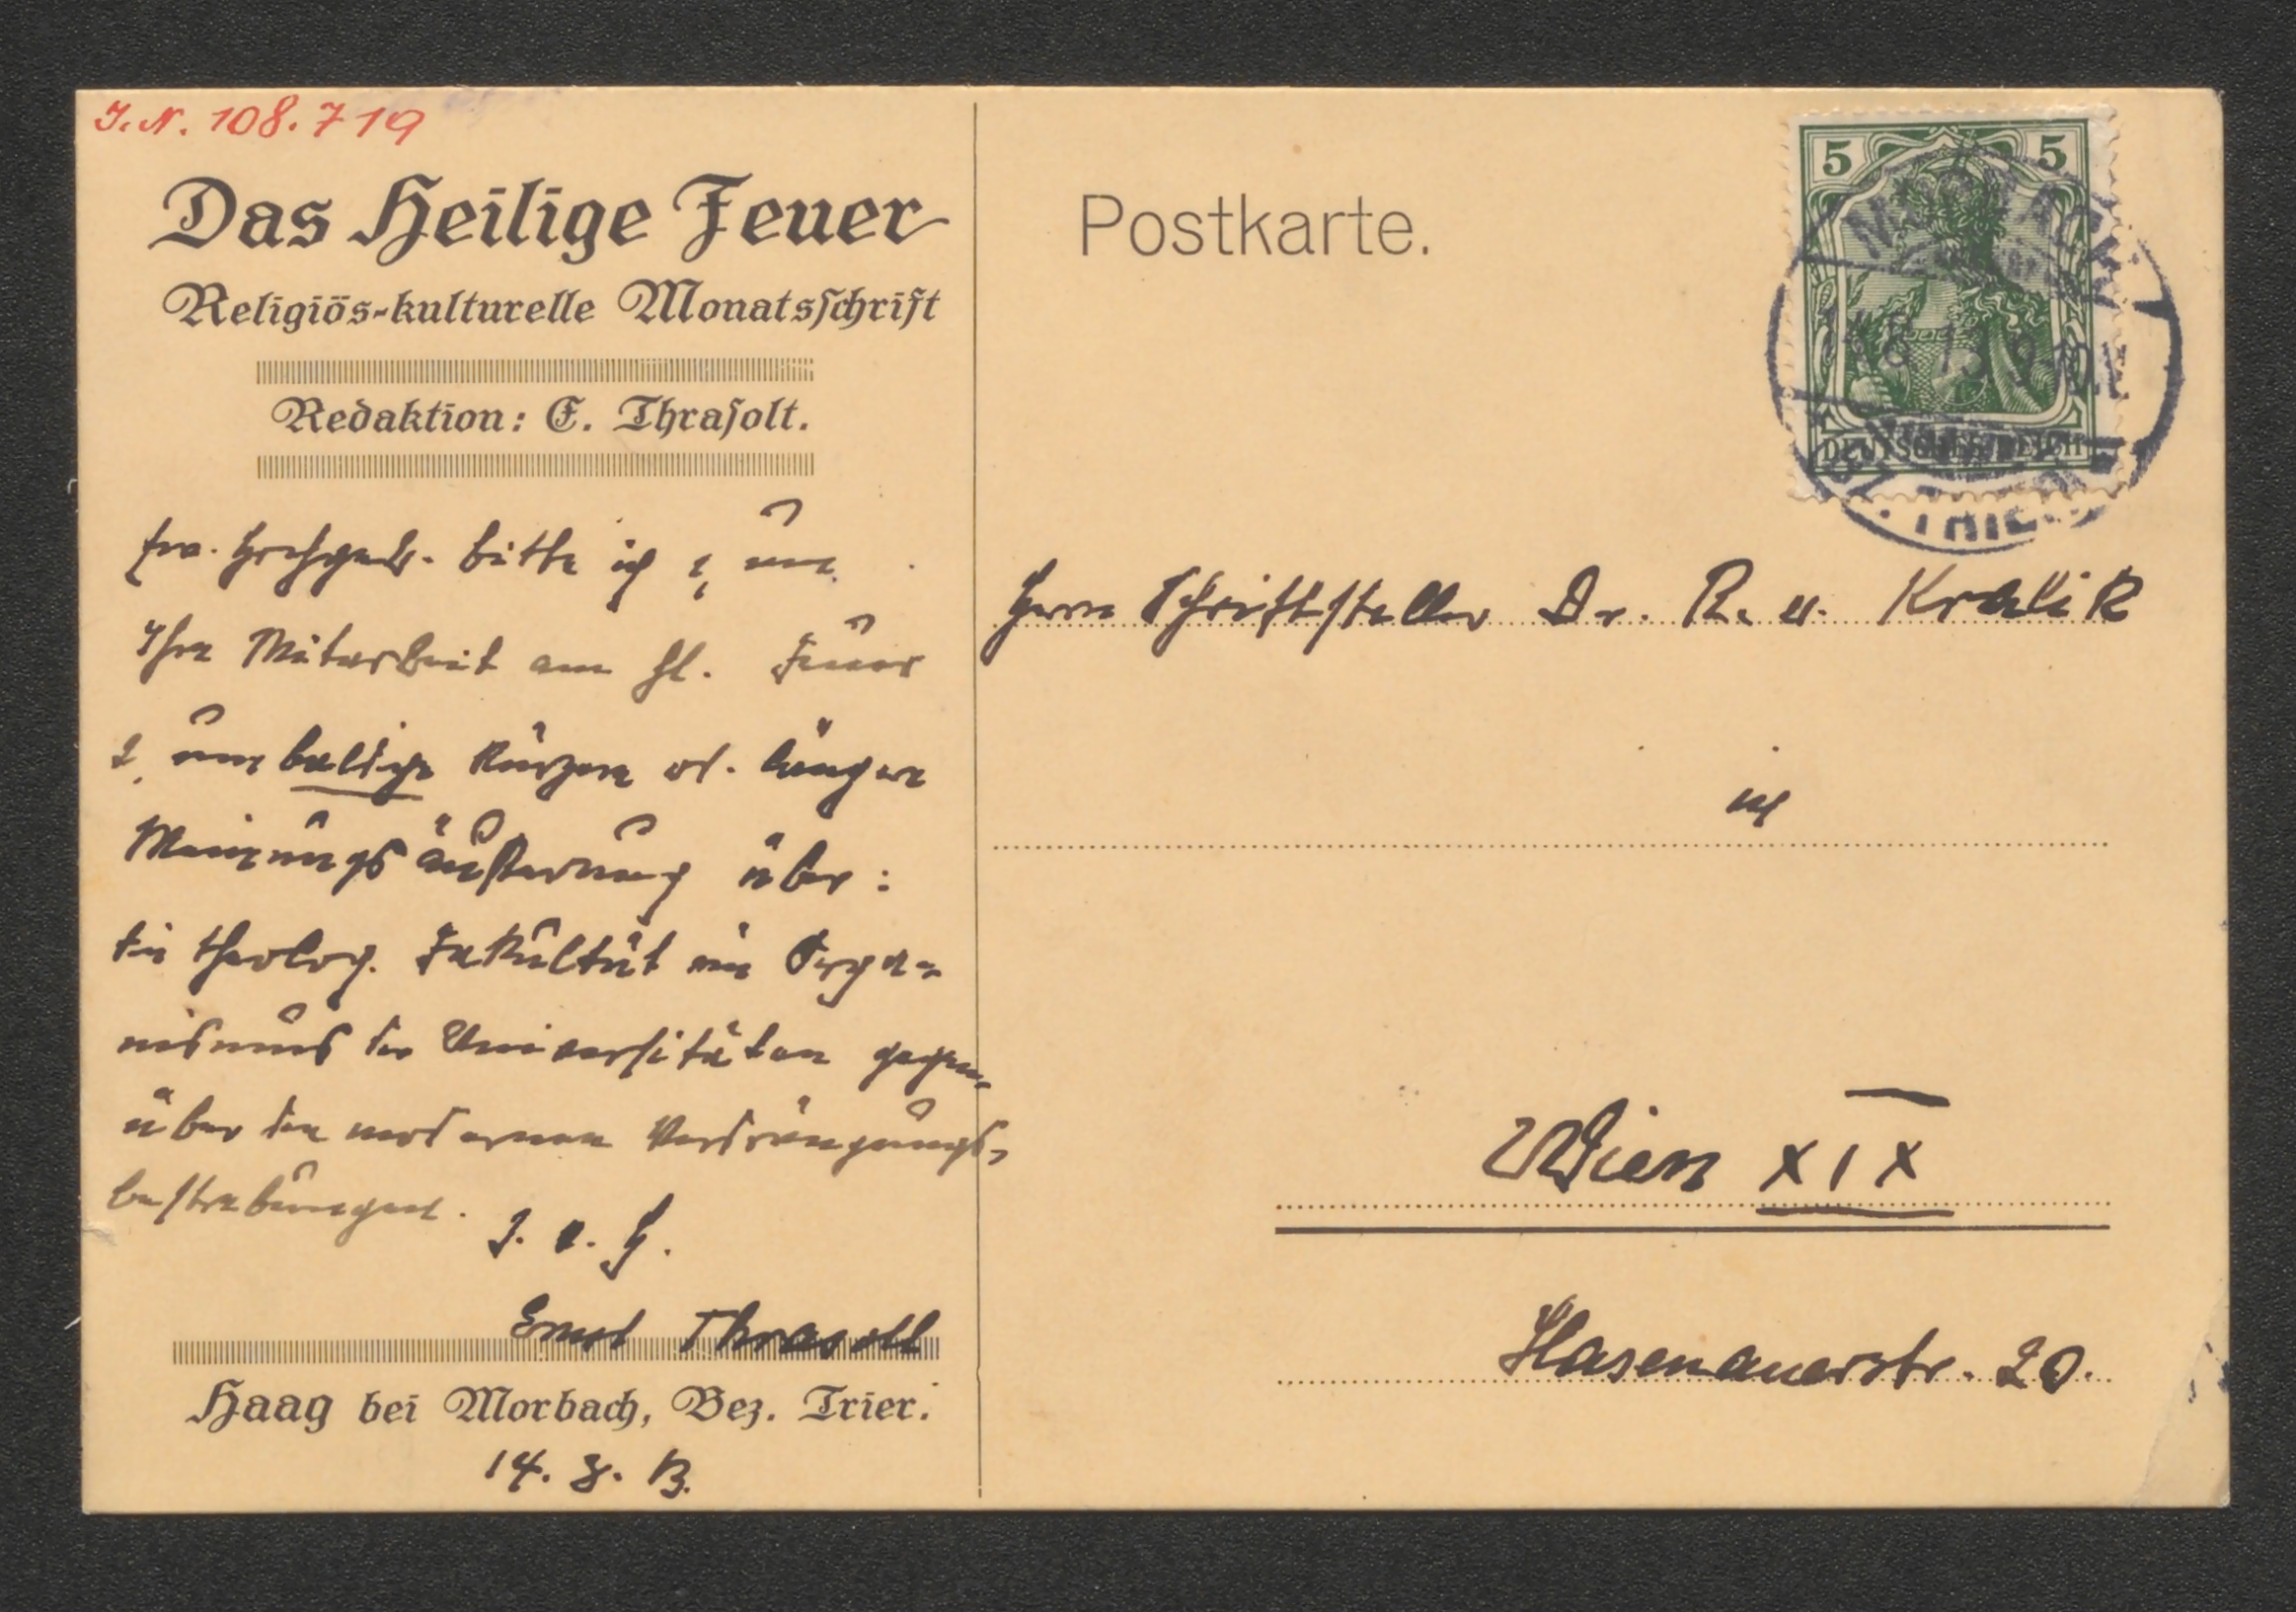 J.N. 108.719
Das Heilige Feuer
Religiös-kulturelle Monatsschrift
Redaktion: E. Thrasolt.
Ew. Hochgeb. bitte ich 1, um
Ihre Mitarbeit am hl. Feuer
2, um baldige kürzere od. längere
Meinungsäußerung über:
die theolog. Fakultät im Orga=
nismus der Universitäten gegen=
über den modernen Verdrängungs=
bestrebungen.
I. v. H.
Ernst Thrasolt
Haag bei Morbach, Bez. Trier.
14. 8. 13.
Postkarte.
5 5
DEUTSCHES REICH
Herrn Schriftsteller Dr. R. v. Kralik
in
Wien XIX
Hasenauerstr. 20.